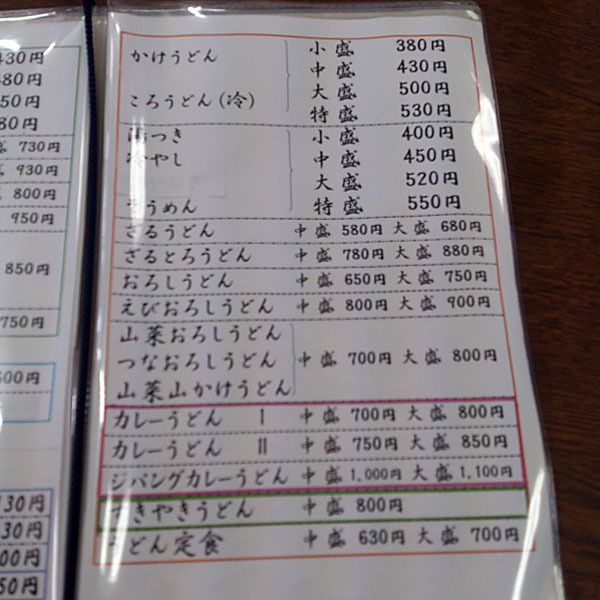 430円
480円
50円
80円
盛 730円
盛 930円
盛 800円
950円
850円
750円
600円
130円
30円
00円
50円
かけうどん
ころうどん(冷)
小盛 380円
中盛 430円
大盛 500円
特盛 530円
湯つき
冷やし
そうめん
小盛 400円
中盛 450円
大盛 520円
特盛 550円
ざるうどん 中盛 580円 大盛 680円
ざるとろうどん 中盛 780円 大盛 880円
おろしうどん 中盛 650円 大盛 750円
えびおろしうどん 中盛 800円 大盛 900円
山菜おろしうどん
つなおろしうどん 中盛 700円 大盛 800円
山菜山かけうどん
カレーうどん Ⅰ 中盛 700円 大盛 800円
カレーうどん Ⅱ 中盛 750円 大盛 850円
ジパングカレーうどん 中盛 1,000円 大盛 1,100円
すきやきうどん 中盛 800円
うどん定食 中盛 630円 大盛 700円